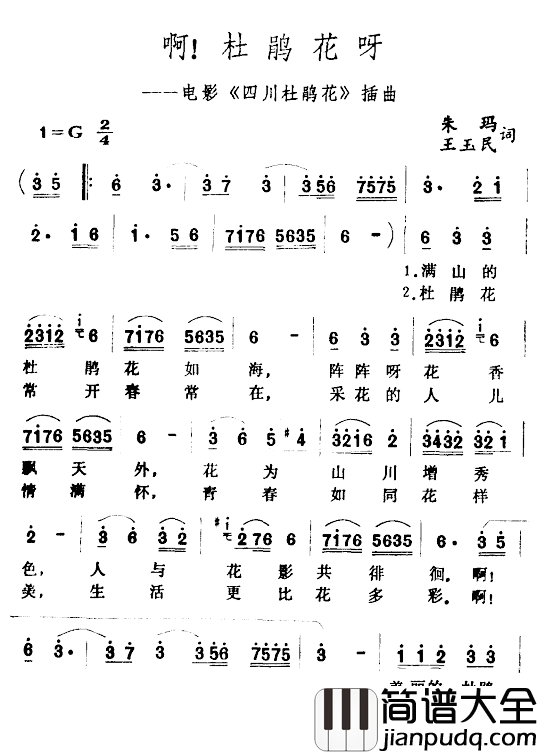 啊！杜鹃花呀
——电影《四川杜鹃花》插曲
1=G 2/4
朱玛
王玉民 词
(3 5 |: 6 3· | 3 7 3 | 3 56 7575 | 3· 2 1
2· 1 6 | 1· 5 6 | 7176 5635 | 6 - ) | 6 3 3
1.满山的
2.杜鹃花
2312 6 | 7176 5635 | 6 - | 6 3 3 | 2312 6
杜鹃花如海，阵阵呀花香
常开春常在，采花的人儿
7176 5635 | 6 - | 3 6 5 #4 | 3216 2 | 3432 32 1
飘天外，花为山川增秀
情满怀，青春如同花样
2 - | 3 6 3 2 | 2 76 6 | 5 6 7276 5632 | 6· 3 5
色，人与花影共徘徊。啊！
美，生活更比花多彩。啊！
6 3· | 3 7 3 | 3 56 7575 | 3 - | 1 1 2 3
简谱大全
jianpudq.com